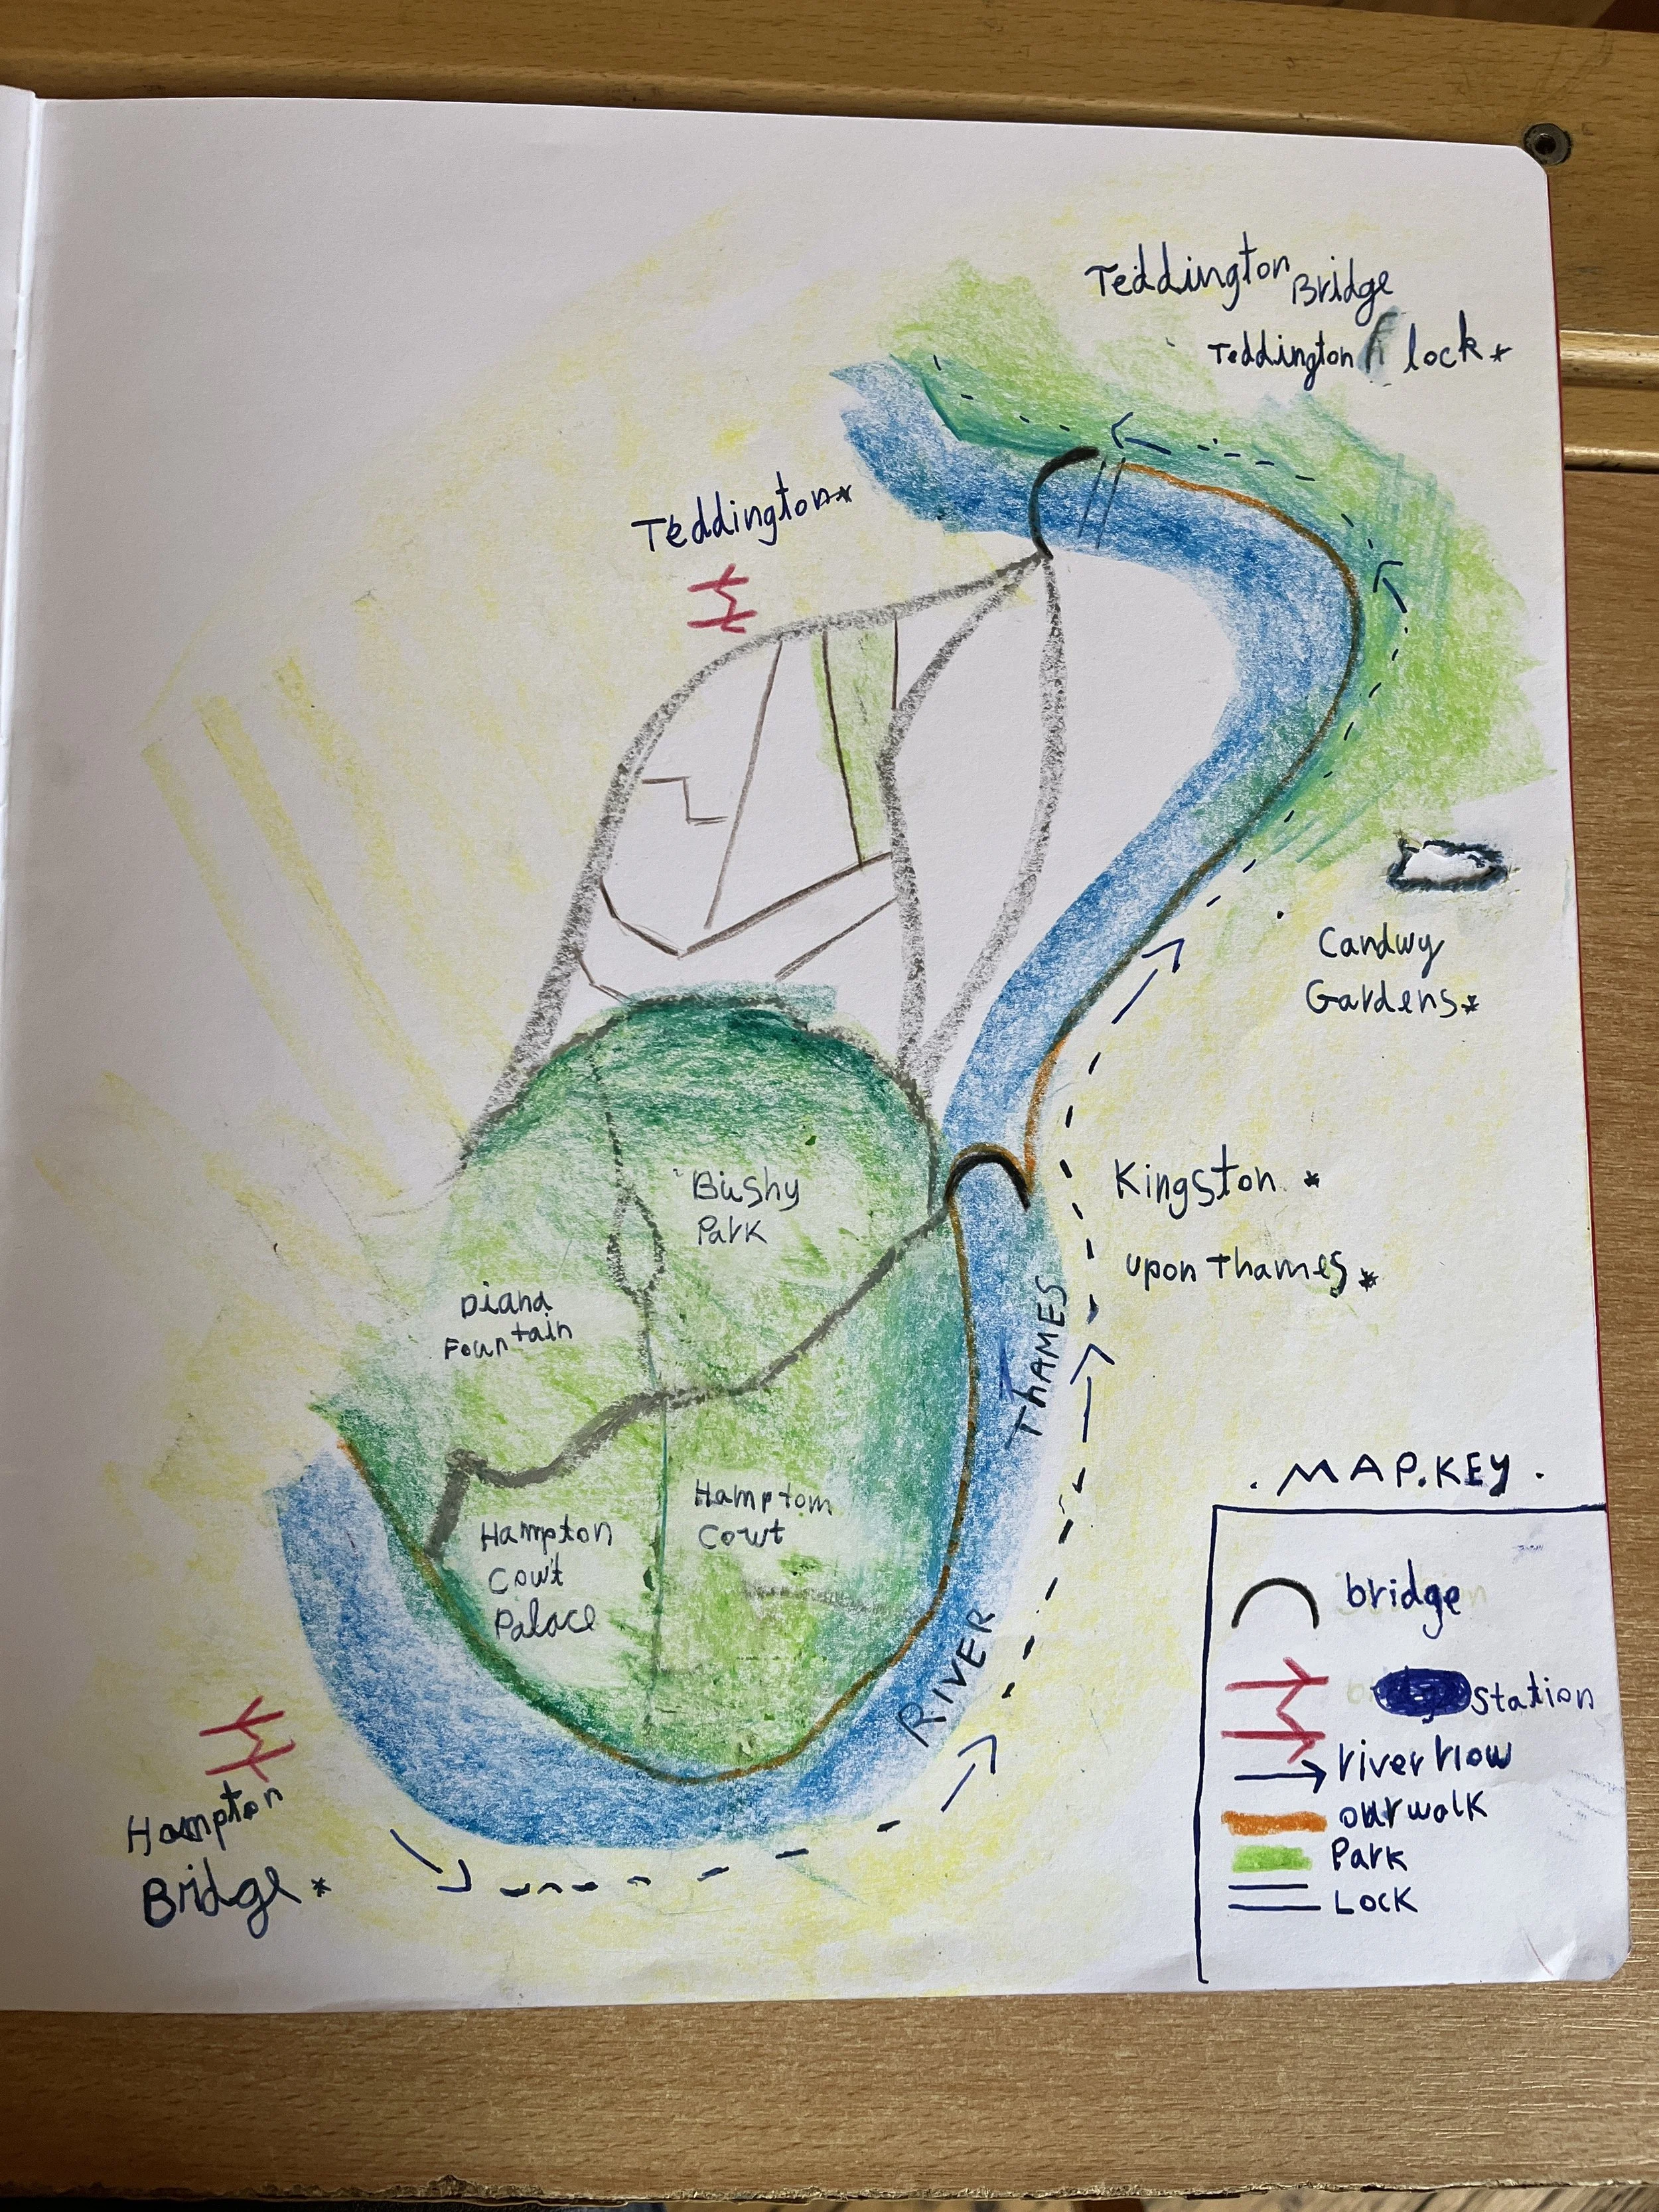 Teddington Bridge
Teddington lock*
Teddington*
Candwy
Gardens*
Kingston *
upon Thames*
Bushy
Park
Diana
Fountain
Hampton
Cowt
Palace
Hamptom
Cowt
RIVER THAMES
Hampton
Bridge*
. MAP.KEY .
bridge
station
river flow
our walk
Park
Lock